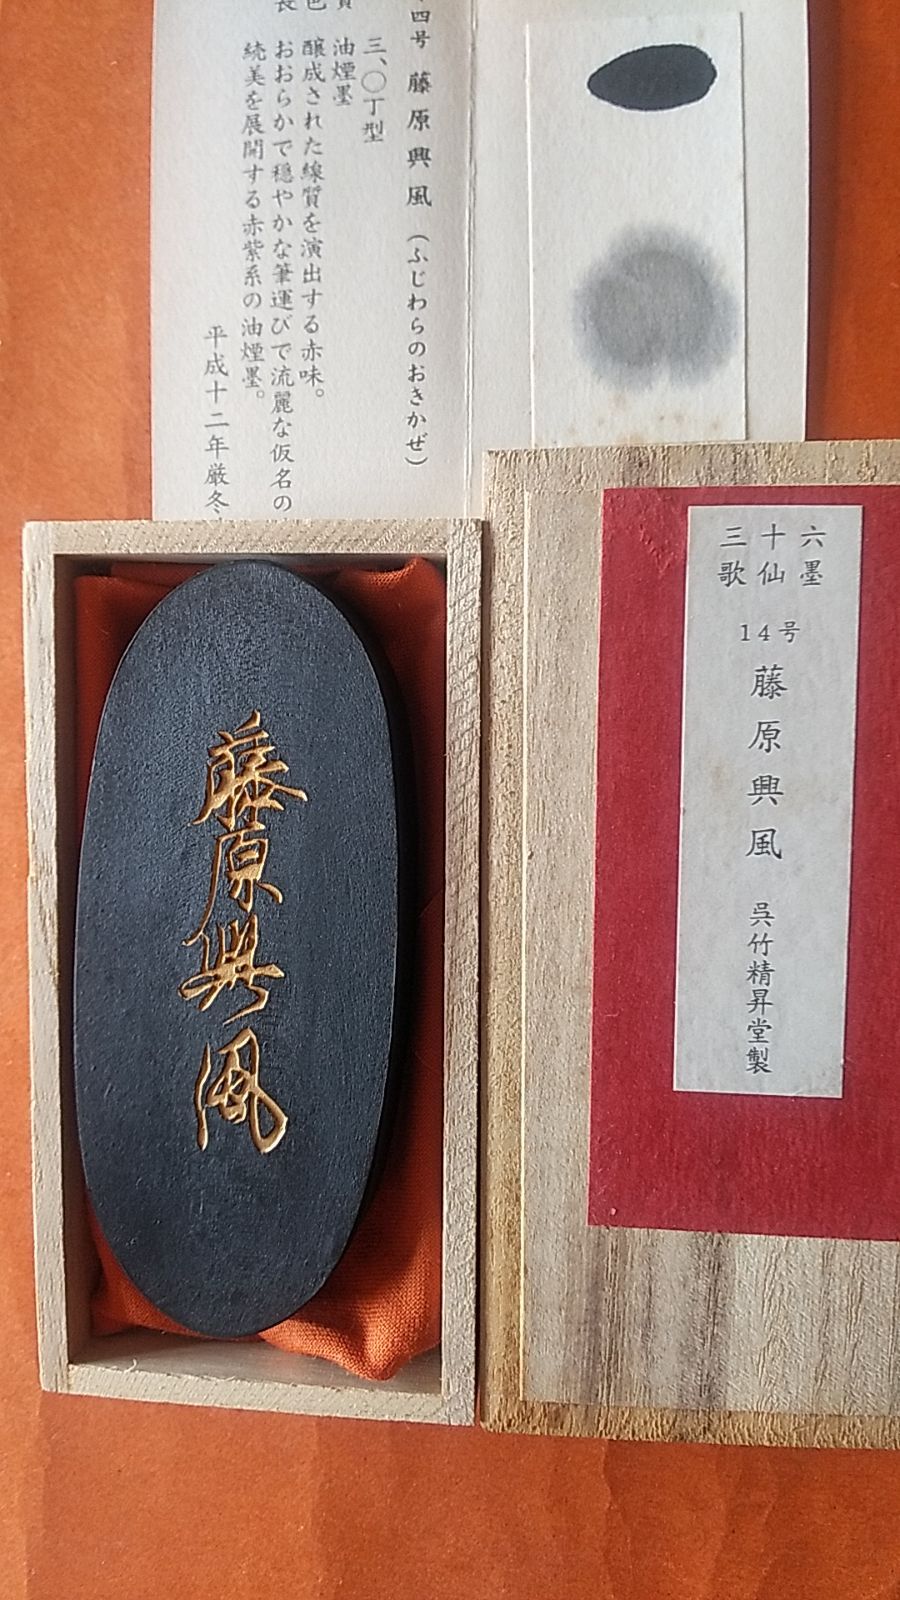 四号 藤原興風（ふじわらのおきかぜ）
三、〇丁型
油煙墨
醸成された線質を演出する赤味。
おおらかで穏やかな筆運びで流麗な仮名の
続美を展開する赤紫系の油煙墨。
平成十二年厳冬
藤原興風
三十六
歌仙墨
14号
藤原興風
呉竹精昇堂製